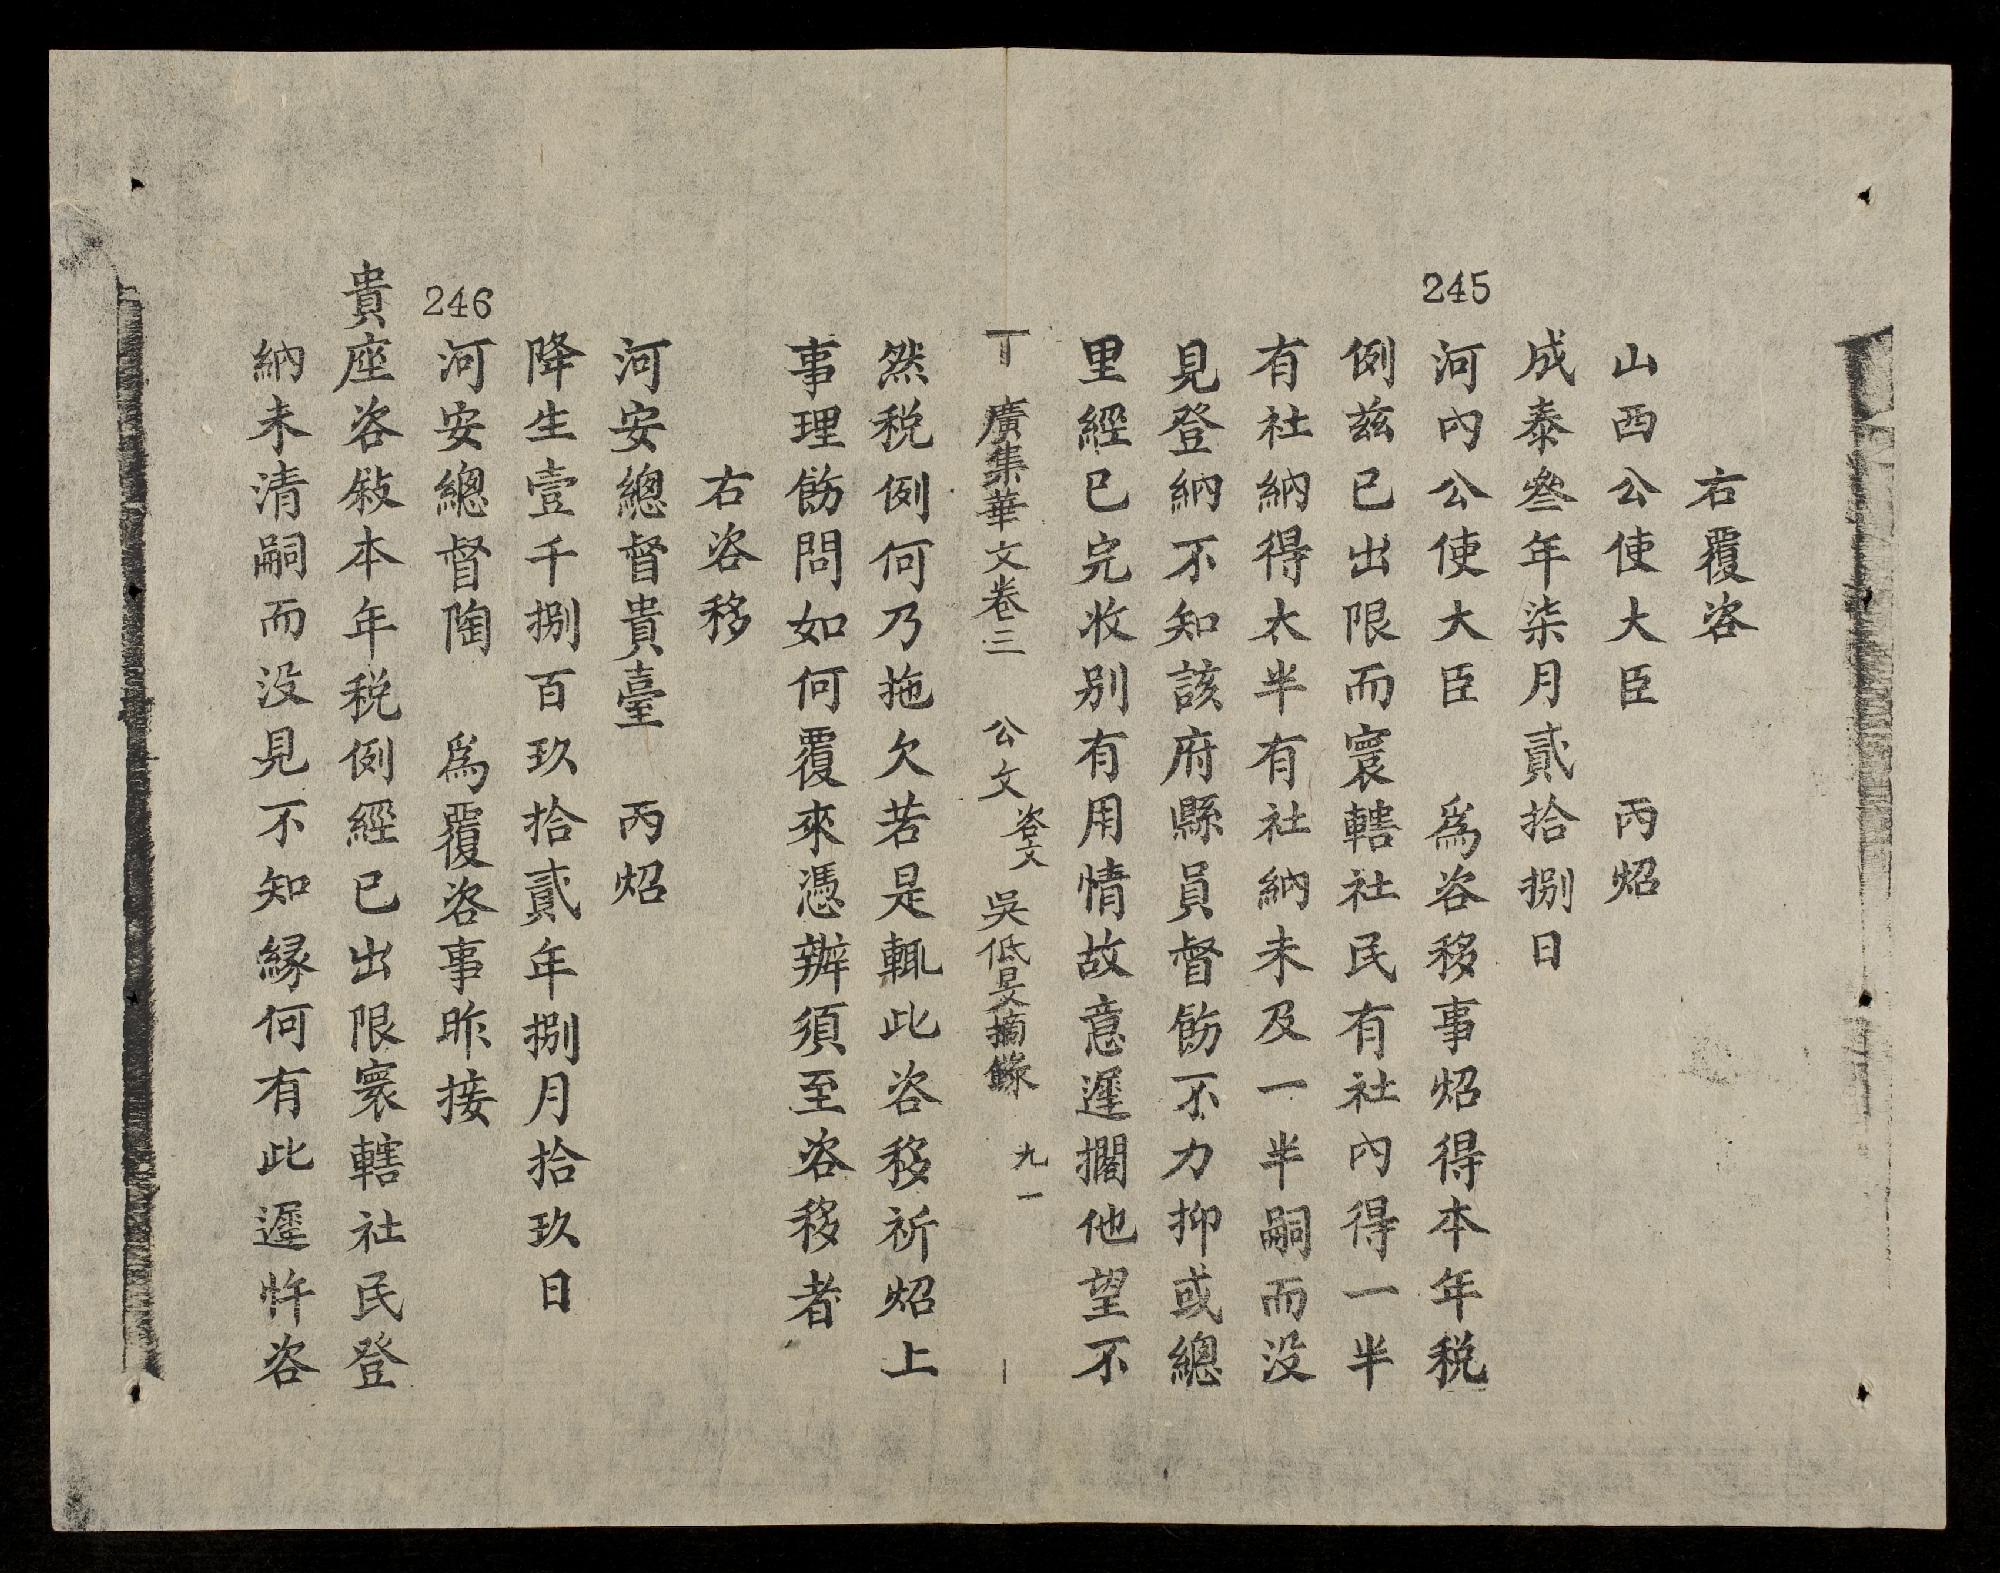 右覆咨
山西公使大臣　丙炤
成泰叄年柒月貳拾捌日
245
河內公使大臣　爲咨移事炤得本年税
例茲已出限而寰轄社民有社內得一半
有社納得太半有社納未及一半嗣而没
見登納不知該府縣員督飭不力抑或總
里經已完收别有用情故意遲擱他望不
廣集華文卷三　公文咨文　吳低旻摘錄　九一
然税例何乃拖欠若是輒此咨移祈炤上
事理飭問如何覆來憑辦須至咨移者
右咨移
河安總督貴臺　丙炤
降生壹千捌百玖拾貳年捌月拾玖日
246
河安總督陶　爲覆咨事昨接
貴座咨敍本年税例經已出限寰轄社民登
納未清嗣而没見不知緣何有此遲忤咨